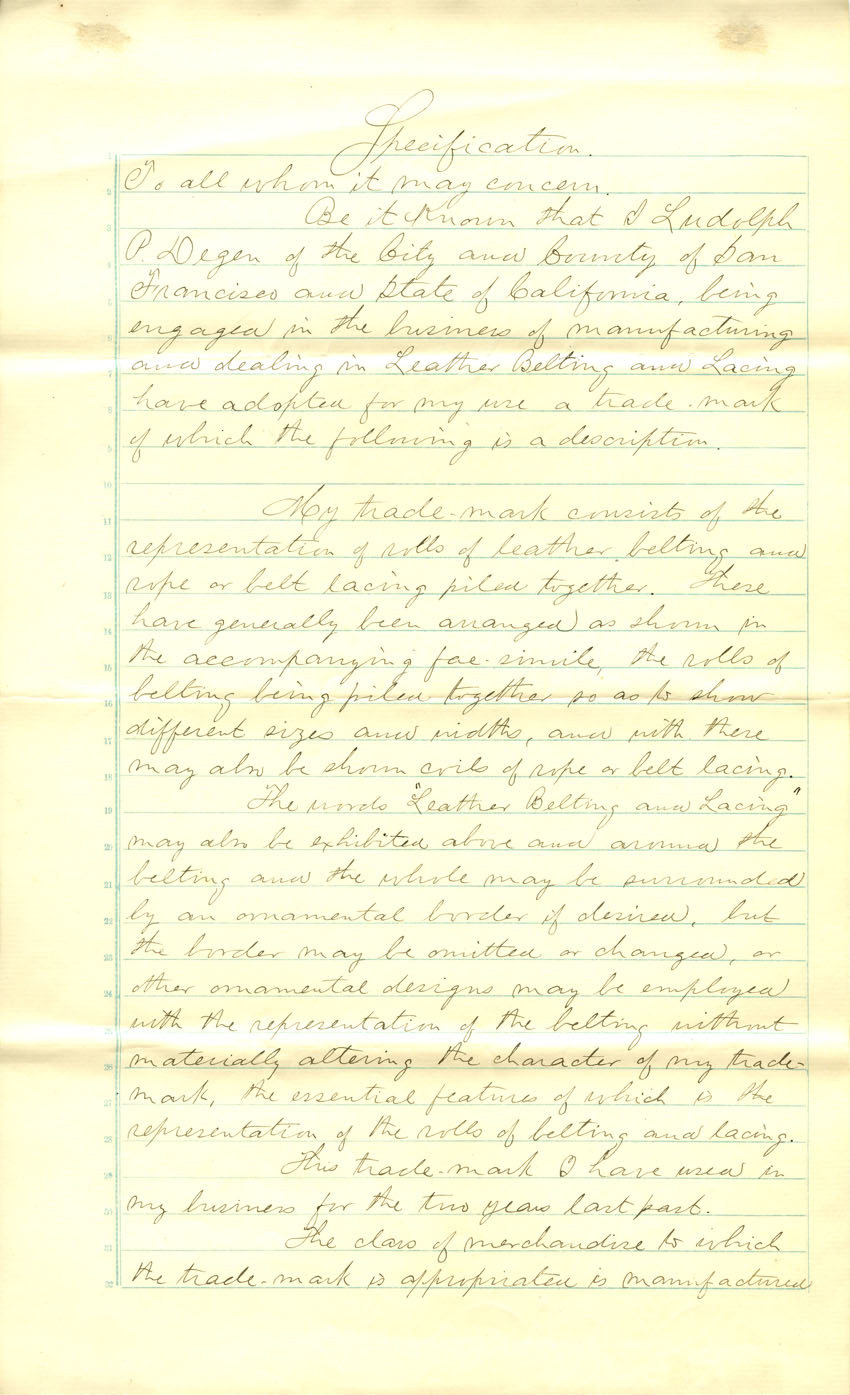 Specification.
To all whom it may concern.
Be it Known that I Ludolph
P. Degen of the City and County of San
Francisco and State of California, being
engaged in the business of manufacturing
and dealing in Leather Belting and Lacing
have adopted for my use a trade-mark
of which the following is a description.
My trade-mark consists of the
representation of rolls of leather belting and
rope or belt lacing piled together. These
have generally been arranged as shown in
the accompanying fac-simile, the rolls of
belting being piled together so as to show
different sizes and widths, and with these
may also be shown coils of rope or belt lacing.
The words "Leather Belting and Lacing"
may also be exhibited above and around the
belting and the whole may be surrounded
by an ornamental border if desired, but
the border may be omitted or changed, or
other ornamental designs may be employed
with the representation of the belting without
materially altering the character of my trade-
mark, the essential features of which is the
representation of the rolls of belting and lacing.
This trade-mark I have used in
my business for the two years last past.
The class of merchandise to which
the trade-mark is appropriated is manufactured